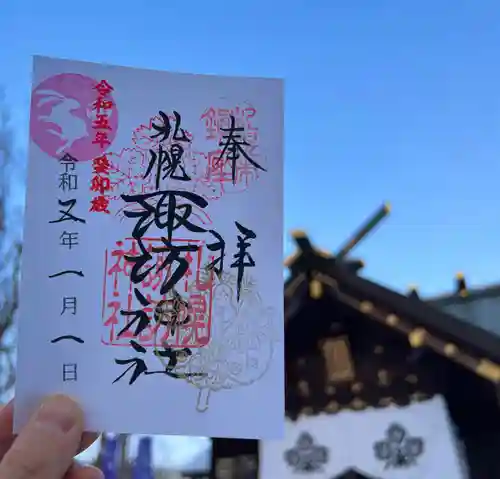 奉拝
札幌諏訪神社
令和五年 癸卯歳
令和五年一月一日